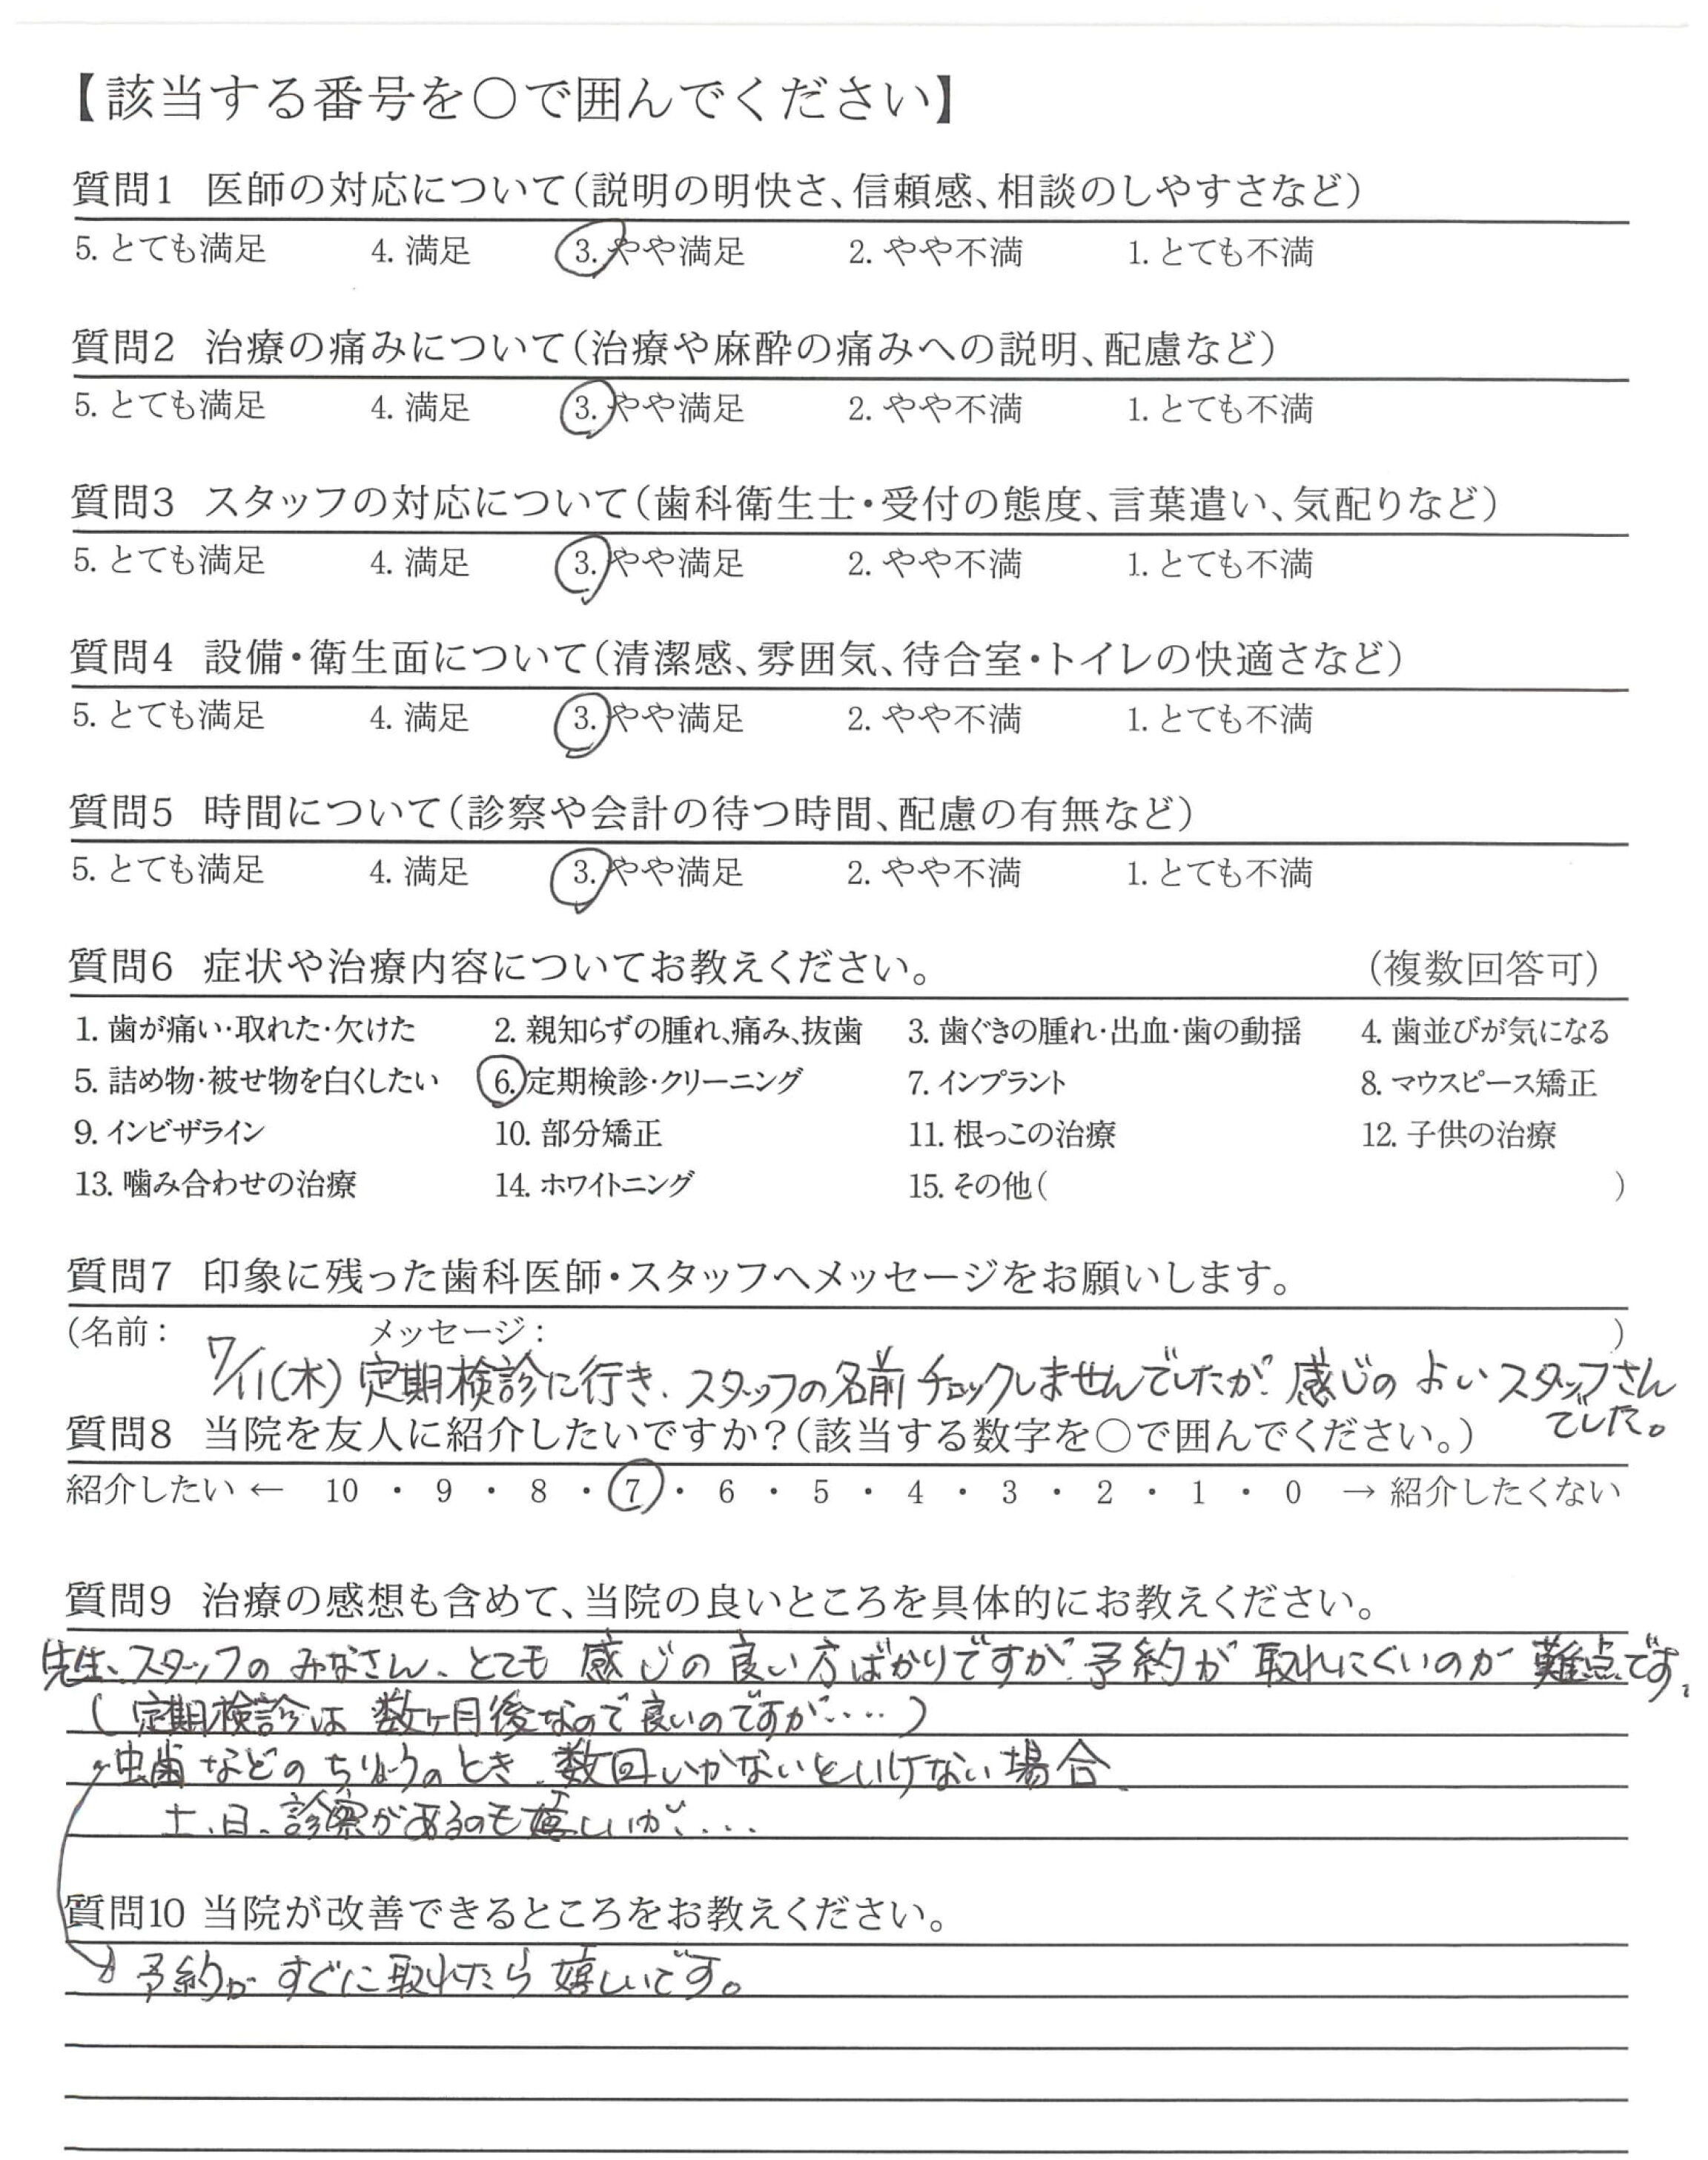 【該当する番号を〇で囲んでください】
質問1 医師の対応について(説明の明快さ、信頼感、相談のしやすさなど)
5. とても満足 4. 満足 3. やや満足 2. やや不満 1. とても不満
質問2 治療の痛みについて(治療や麻酔の痛みへの説明、配慮など)
5. とても満足 4. 満足 3. やや満足 2. やや不満 1. とても不満
質問3 スタッフの対応について(歯科衛生士・受付の態度、言葉遣い、気配りなど)
5. とても満足 4. 満足 3. やや満足 2. やや不満 1. とても不満
質問4 設備・衛生面について(清潔感、雰囲気、待合室・トイレの快適さなど)
5. とても満足 4. 満足 3. やや満足 2. やや不満 1. とても不満
質問5 時間について(診察や会計の待つ時間、配慮の有無など)
5. とても満足 4. 満足 3. やや満足 2. やや不満 1. とても不満
質問6 症状や治療内容についてお教えください。 (複数回答可)
1. 歯が痛い・取れた・欠けた 2. 親知らずの腫れ、痛み、抜歯 3. 歯ぐきの腫れ・出血・歯の動揺 4. 歯並びが気になる
5. 詰め物・被せ物を白くしたい 6. 定期検診・クリーニング 7. インプラント 8. マウスピース矯正
9. インビザライン 10. 部分矯正 11. 根っこの治療 12. 子供の治療
13. 噛み合わせの治療 14. ホワイトニング 15. その他( )
質問7 印象に残った歯科医師・スタッフへメッセージをお願いします。
(名前: メッセージ: )
7/11(木) 定期検診に行き、スタッフの名前チェックしませんでしたが、感じのよいスタッフさん
でした。
質問8 当院を友人に紹介したいですか?(該当する数字を〇で囲んでください。)
紹介したい ← 10 ・ 9 ・ 8 ・ 7 ・ 6 ・ 5 ・ 4 ・ 3 ・ 2 ・ 1 ・ 0 → 紹介したくない
質問9 治療の感想も含めて、当院の良いところを具体的にお教えください。
先生、スタッフのみなさん、とても感じの良い方ばかりですが、予約が取れにくいのが難点です。
(定期検診は数ヶ月後なので良いのですが‥‥)
虫歯などのちりょうのとき、数回いかないといけない場合、
土、日、診察があるのも嬉しいが、‥‥
質問10 当院が改善できるところをお教えください。
予約がすぐに取れたら嬉しいです。